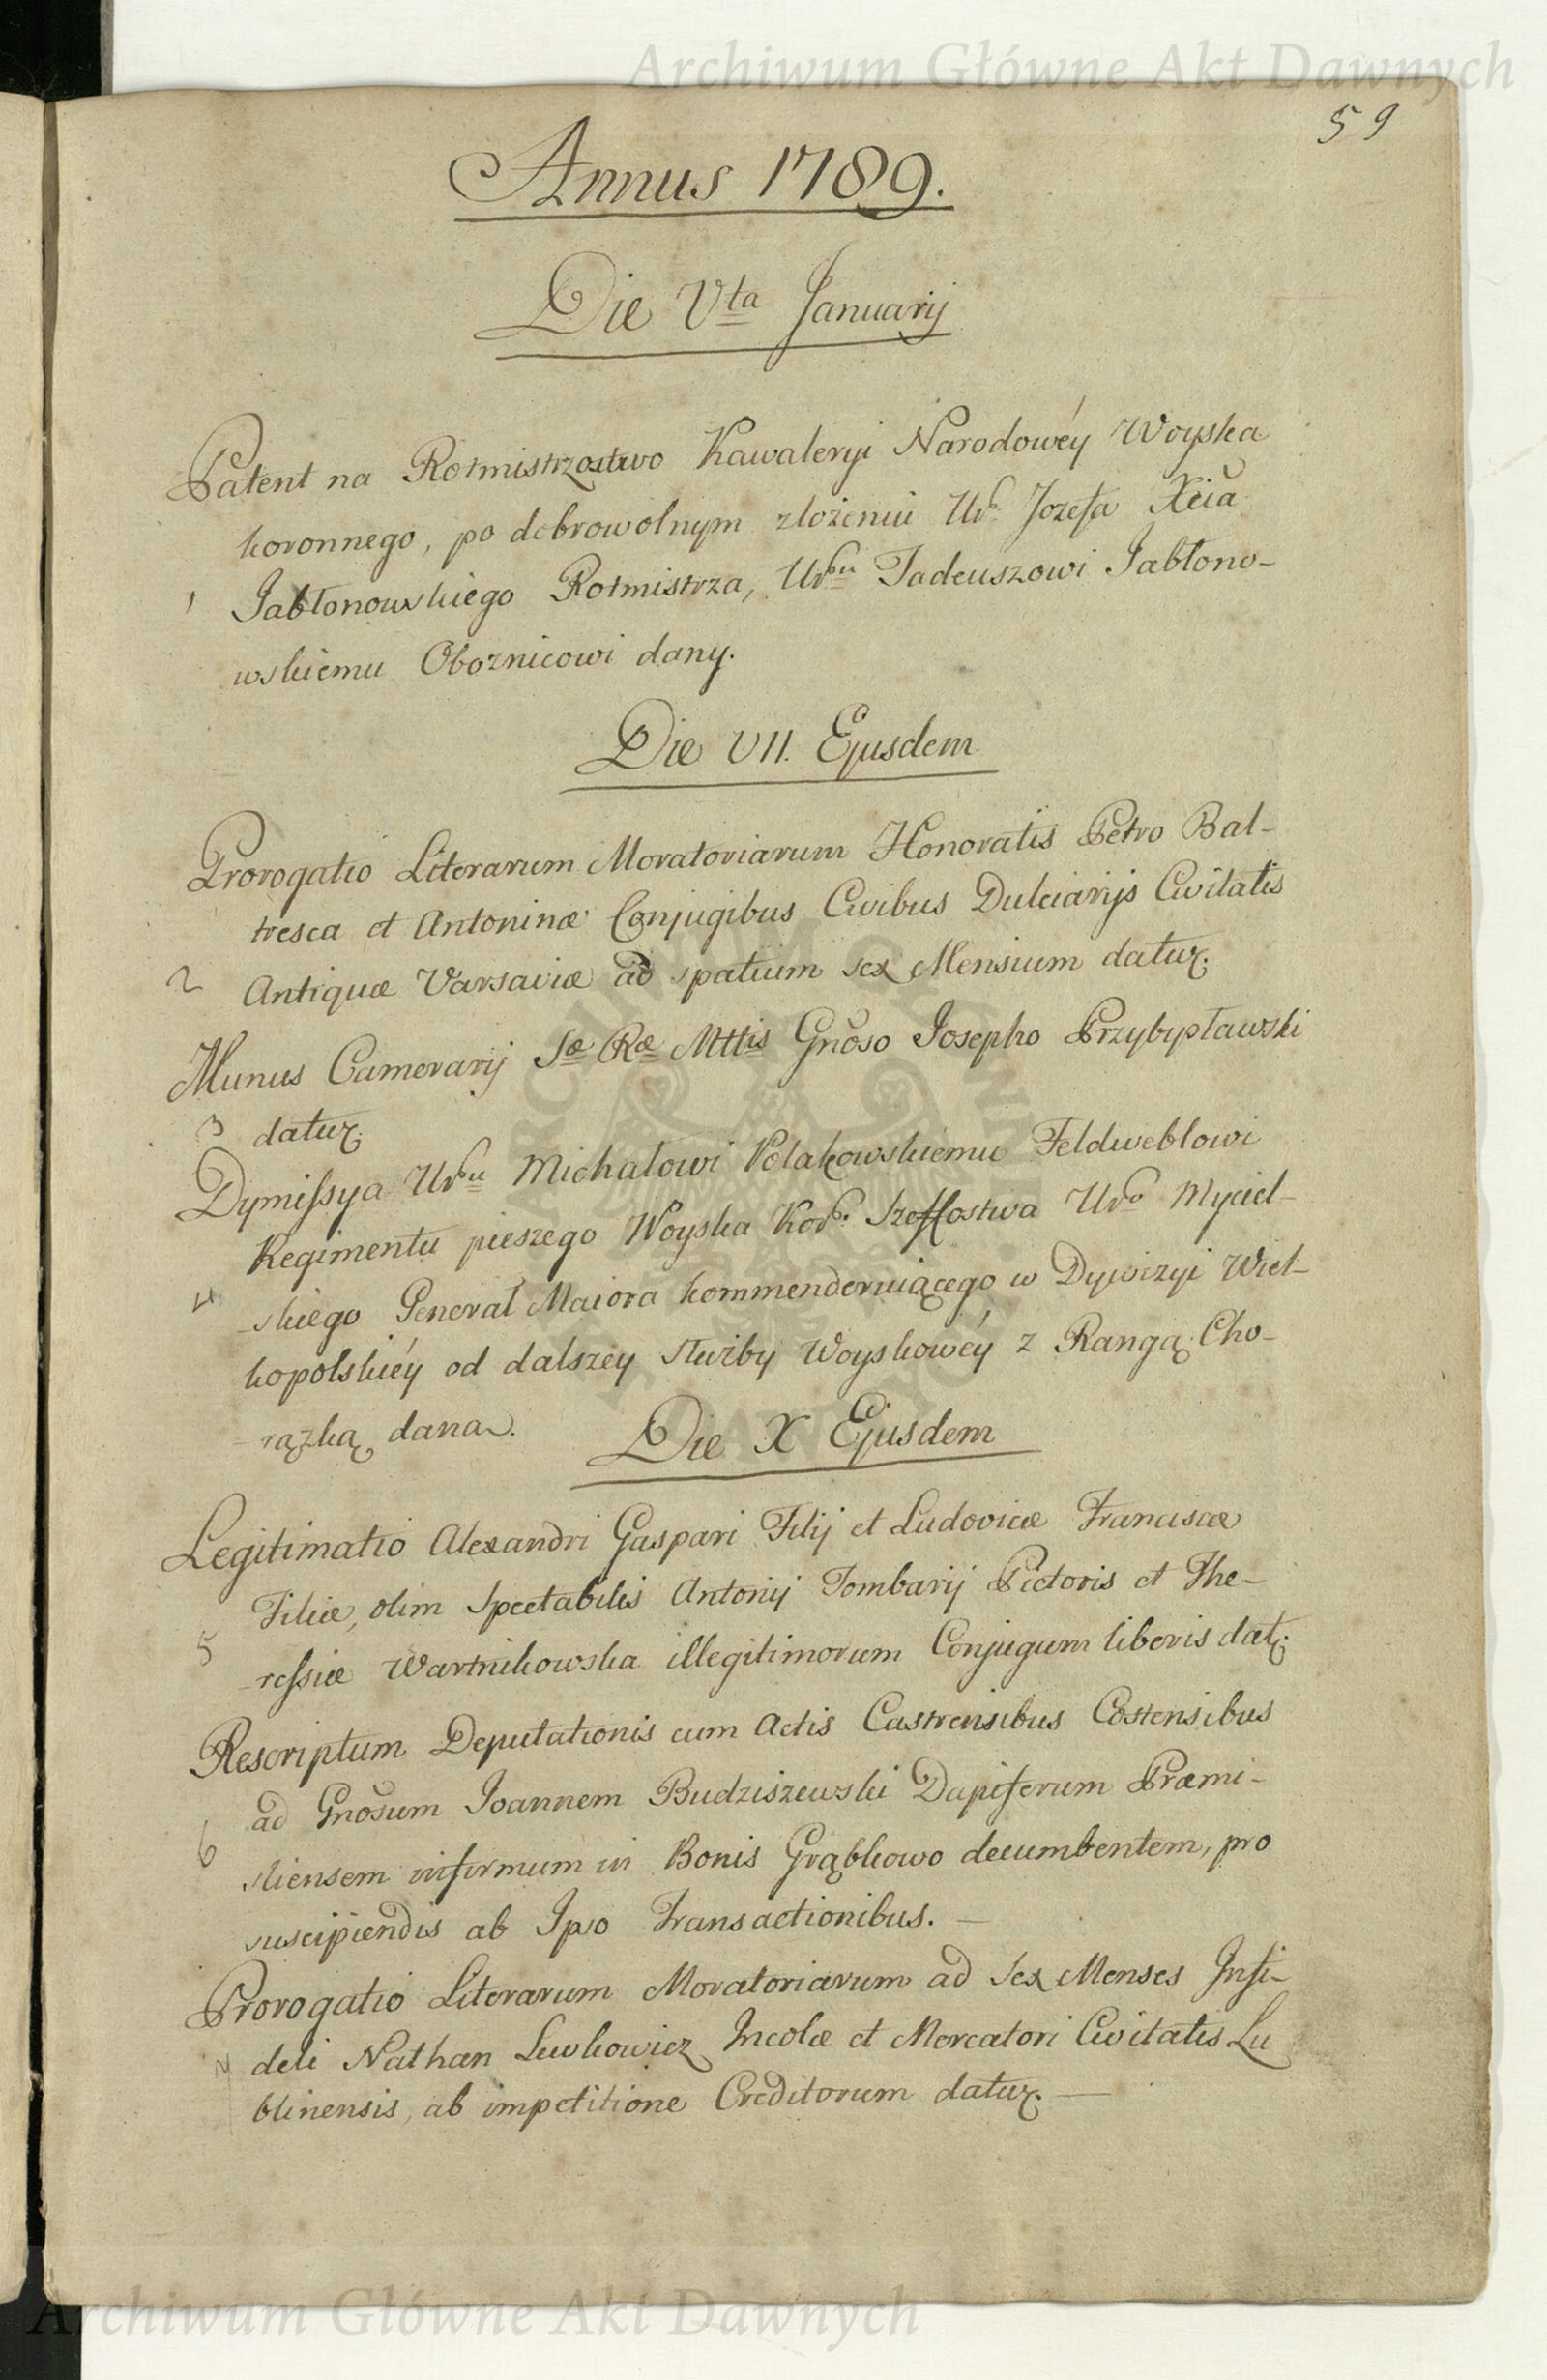 Archiwum Główne Akt Dawnych
59
Annus 1789.
Die Vta Januarij
Patent na Rotmistrzostwo Kawaleryi Narodowéy Woyska
koronnego, po dobrowolnym złożeniu Ur. Jozefa Xcia
1 Jabłonowskiego Rotmistrza, Urnu Tadeuszowi Jabłono-
wskiemu Oboznicowi dany.
Die VII. Ejusdem
Prorogatio Literarum Moratoriarum Honoratis Petro Bal-
tresca et Antoninæ Conjugibus Civibus Dulciarijs Civitatis
2 Antiquæ Varsaviæ ad spatium sex Mensium datur.
Munus Camerarij Sæ Ræ Mttis Gnoso Josepho Przybysławski
3 datur.
Dymissya Urnu Michałowi Polakowskiemu Feldweblowi
Regimentu pieszego Woyska Kor. Szeffostwa Uro Myciel-
4 -skiego Generał Maiora kommenderuiącego w Dywizyi Wiel-
kopolskiéy od dalszéy służby Woyskowéy z Rangą Cho-
rążką dana.
Die X Ejusdem
Legitimatio Alexandri Gaspari Filij et Ludovicæ Franciscæ
Filiæ, olim Spectabilis Antonij Tombarij Pictoris et The-
5 -ressiæ Wartnikowska illegitimorum Conjugum liberis dat.
Rescriptum Deputationis cum Actis Castrensibus Costensibus
ad Gnosum Joannem Budziszewski Dapiferum Præmi-
6 sliensem infirmum in Bonis Grąbkowo decumbentem, pro
suscipiendis ab Ipso Transactionibus. —
Prorogatio Literarum Moratoriarum ad Sex Menses Infi-
7 deli Nathan Lewkowicz Incolæ et Mercatori Civitatis Lu
blinensis, ab impetitione Creditorum datur. —
Archiwum Główne Akt Dawnych